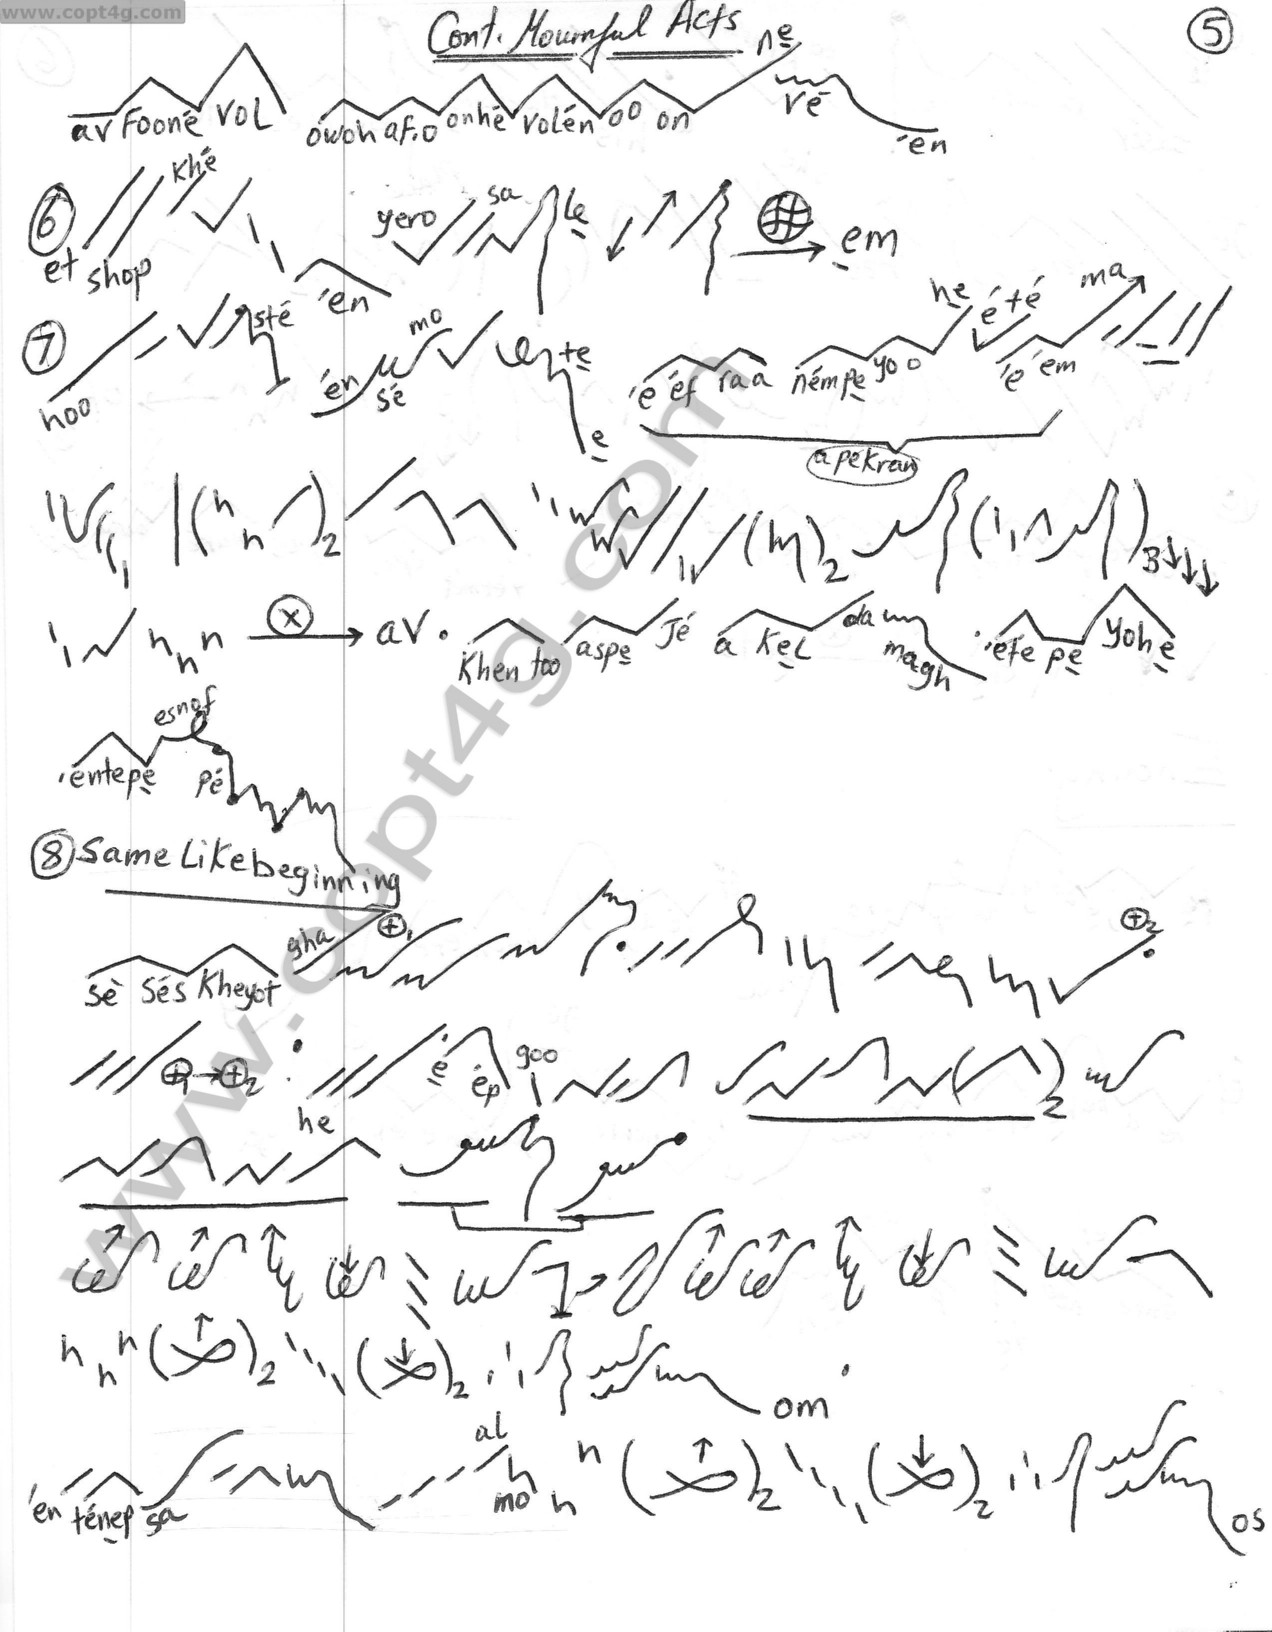 www.copt4g.com
Cont. Mournful Acts 5
av Fooné VOL ówoh af.o onhé volén oo on ne vé én
6 et shop khé én yero sa le em
7 hoo sté én sé mo te e é éf raa némpe yoo he é té é em ma
apekran
n n 2 2 3
n n n x av. Khen too aspe Jé a Kel da magh éte pe yohe
éntepe esnof pé
8 Same Like beginning
sè sés Kheyot gha +1 +2
+1 → +2 he é ép goo 2
n n n 2 2 om
én ténep sa al mo n n 2 2 os
www.copt4g.com